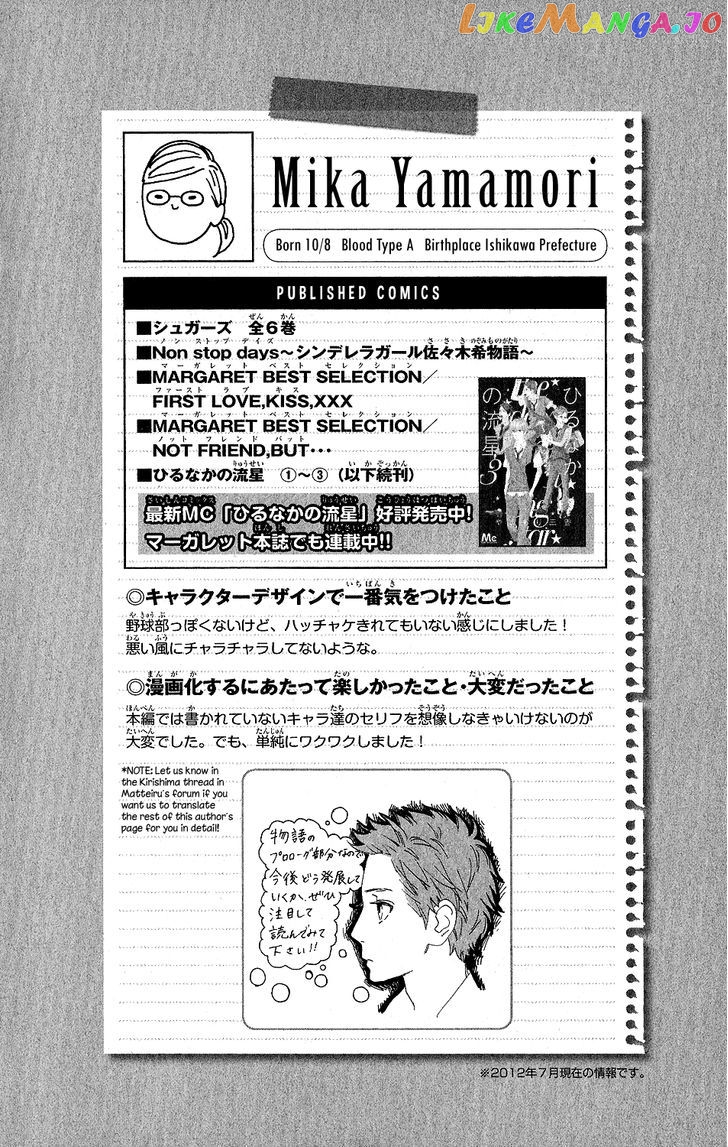 LIKEMANGA.IO
Mika Yamamori
Born 10/8 Blood Type A Birthplace Ishikawa Prefecture
PUBLISHED COMICS
■シュガーズ 全6巻
■Non stop days～シンデレラガール佐々木希物語～
■MARGARET BEST SELECTION／
FIRST LOVE,KISS,XXX
■MARGARET BEST SELECTION／
NOT FRIEND,BUT･･･
■ひるなかの流星 ①～③(以下続刊)
ひるなか
の流星 3
Mc
最新MC「ひるなかの流星」好評発売中!
マーガレット本誌でも連載中!!
◎キャラクターデザインで一番気をつけたこと
野球部っぽくないけど、ハッチャケきれてもいない感じにしました！
悪い風にチャラチャラしてないような。
◎漫画化するにあたって楽しかったこと・大変だったこと
本編では書かれていないキャラ達のセリフを想像しなきゃいけないのが
大変でした。でも、単純にワクワクしました！
*NOTE: Let us know in
the Kirishima thread in
Matteiru's forum if you
want us to translate
the rest of this author's
page for you in detail!
物語の
プロローグ部分なので
今後どう発展して
いくか、ぜひ
注目して
読んでみて
下さい!!
※2012年7月現在の情報です。